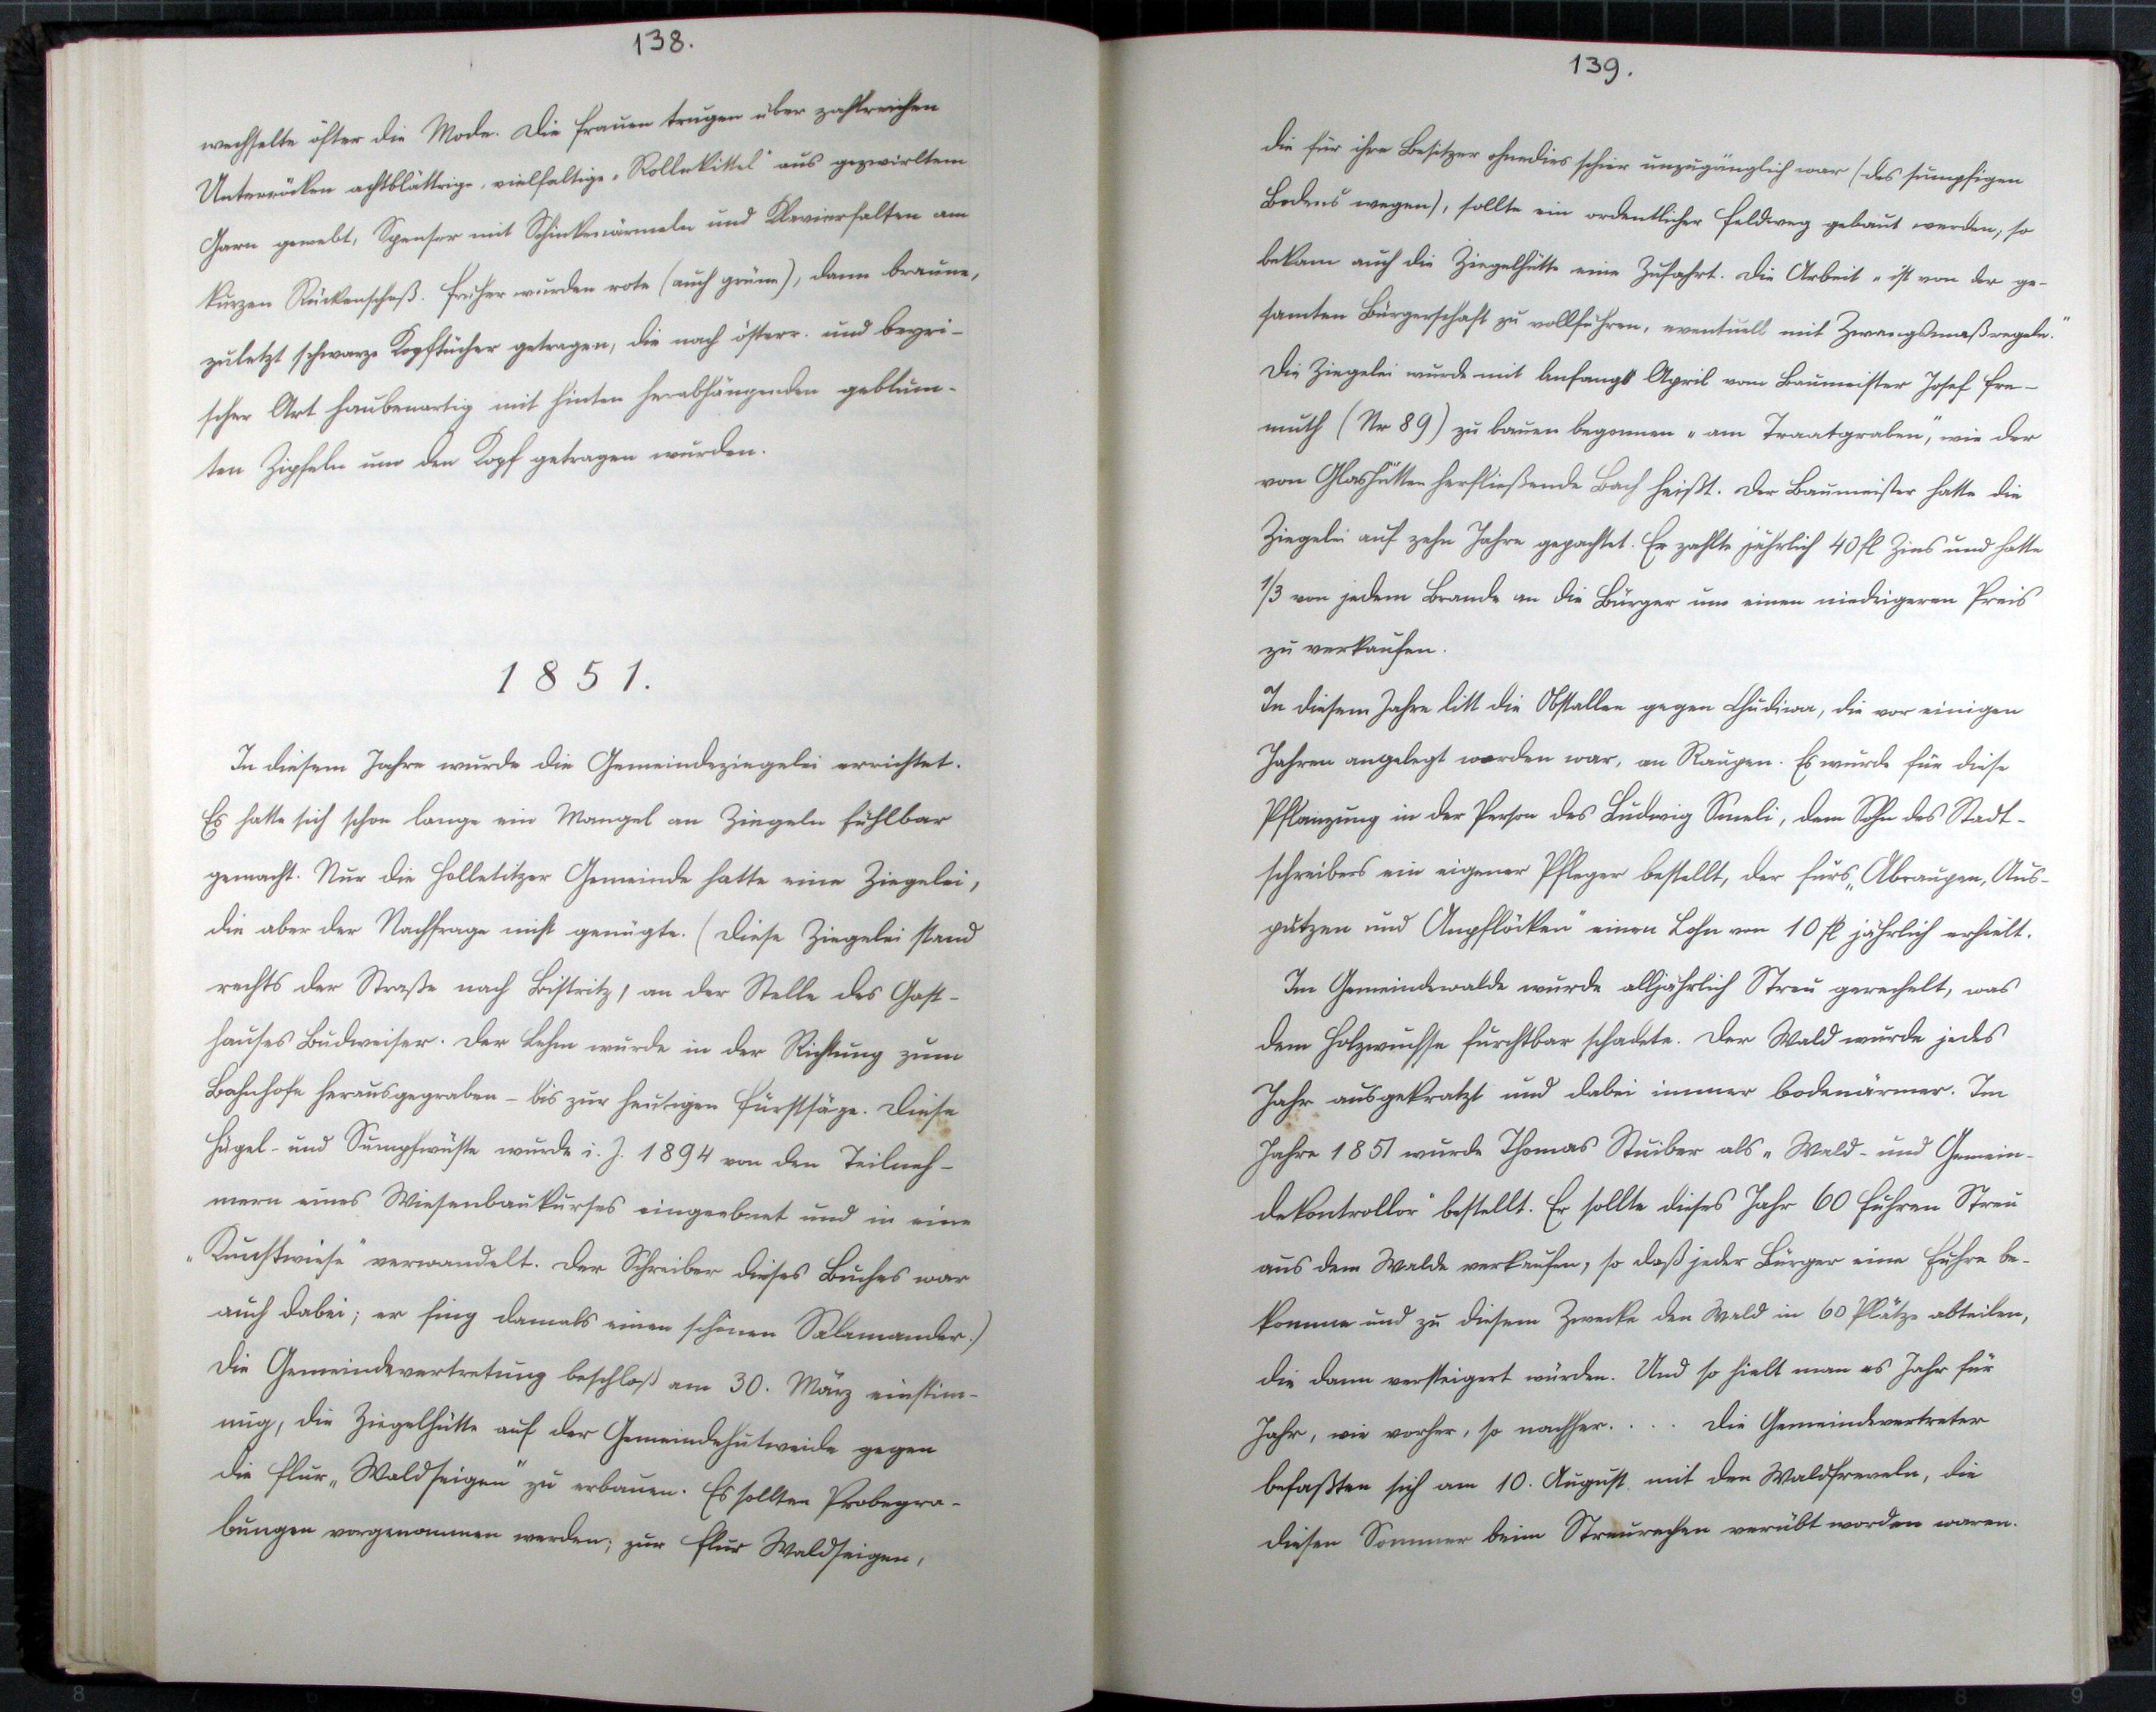 138.
wechselte öfter die Mode. Die Frauen trugen über zahlreichen
Unterröcken achtblättrige, vielfaltige „Rollekittel" aus gezwirltem
Garn gewebt, Spenser mit Schinkenärmeln und Klavierfalten am
kurzen Rückenschoß. Früher wurden rote (auch grüne), dann braune,
zuletzt schwarze Kopftücher getragen, die nach österr. und beyri-
scher Art haubenartig mit hinten herabhängenden geblüm-
ten Zipfeln um den Kopf getragen wurden.
1851.
In diesem Jahre wurde die Gemeindeziegelei errichtet.
Es hatte sich schon lange ein Mangel an Ziegeln fühlbar
gemacht. Nur die Holletitzer Gemeinde hatte eine Ziegelei,
die aber der Nachfrage nicht genügte. (Diese Ziegelei stand
rechts der Straße nach Bistritz, an der Stelle des Gast-
hauses Budweiser. Der Lehm wurde in der Richtung zum
Bahnhofe herausgegraben – bis zur heutigen Fürstsäge. Diese
Hügel- und Sumpfwüste wurde i. J. 1894 von den Teilneh-
mern eines Wiesenbaukurses eingeebnet und in eine
„Kunstwiese" verwandelt. Der Schreiber dieses Buches war
auch dabei; er fing damals einen schönen Salamander.)
Die Gemeindevertretung beschloß am 30. März einstim-
mig, die Ziegelhütte auf der Gemeindehutweide gegen
die Flur „Waldseigen" zu erbauen. Es sollten Probegra-
bungen vorgenommen werden; zur Flur Waldseigen,
139.
die für ihre Besitzer ohnedies schier unzugänglich war (des sumpfigen
Bodens wegen), sollte ein ordentlicher Feldweg gebaut werden, so
bekam auch die Ziegelhütte eine Zufahrt. Die Arbeit „ist von der ge-
samten Bürgerschaft zu vollführen, eventuell mit Zwangsmaßregeln."
Die Ziegelei wurde mit Anfangs April vom Baumeister Josef Fre-
muth (Nr 89) zu bauen begonnen „am Traatgraben", wie der
von Glashütten herfließende Bach heißt. Der Baumeister hatte die
Ziegelei auf zehn Jahre gepachtet. Er zahlte jährlich 40 fl Zins und hatte
1/3 von jedem Brande an die Bürger um einen niedrigeren Preis
zu verkaufen.
In diesem Jahre litt die Obstallee gegen Chudiwa, die vor einigen
Jahren angelegt worden war, an Raupen. Es wurde für diese
Pflanzung in der Person des Ludwig Smeli, dem Sohn des Stadt-
schreibers ein eigener Pfleger bestellt, der fürs „Abraupen, Aus-
putzen und Anpflöcken" einen Lohn von 10 fl jährlich erhielt.
Im Gemeindewalde wurde alljährlich Streu gerechelt, was
dem Holzwuchse furchtbar schadete. Der Wald wurde jedes
Jahr ausgekratzt und dabei immer bodenärmer. Im
Jahre 1851 wurde Thomas Stuiber als „Wald- und Gemein-
dekontrollor" bestellt. Er sollte dieses Jahr 60 Fuhren Streu
aus dem Walde verkaufen, so daß jeder Bürger eine Fuhre be-
komme und zu diesem Zwecke den Wald in 60 Plätze abteilen,
die dann versteigert würden. Und so hielt man es Jahr für
Jahr, wie vorher, so nachher. . . . Die Gemeindevertreter
befaßten sich am 10. August mit den Waldfreveln, die
diesen Sommer beim Streurechen verübt worden waren.